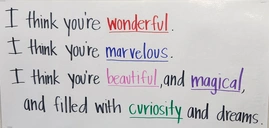 I think you're wonderful.
I think you're marvelous.
I think you're beautiful, and magical,
and filled with curiosity and dreams.